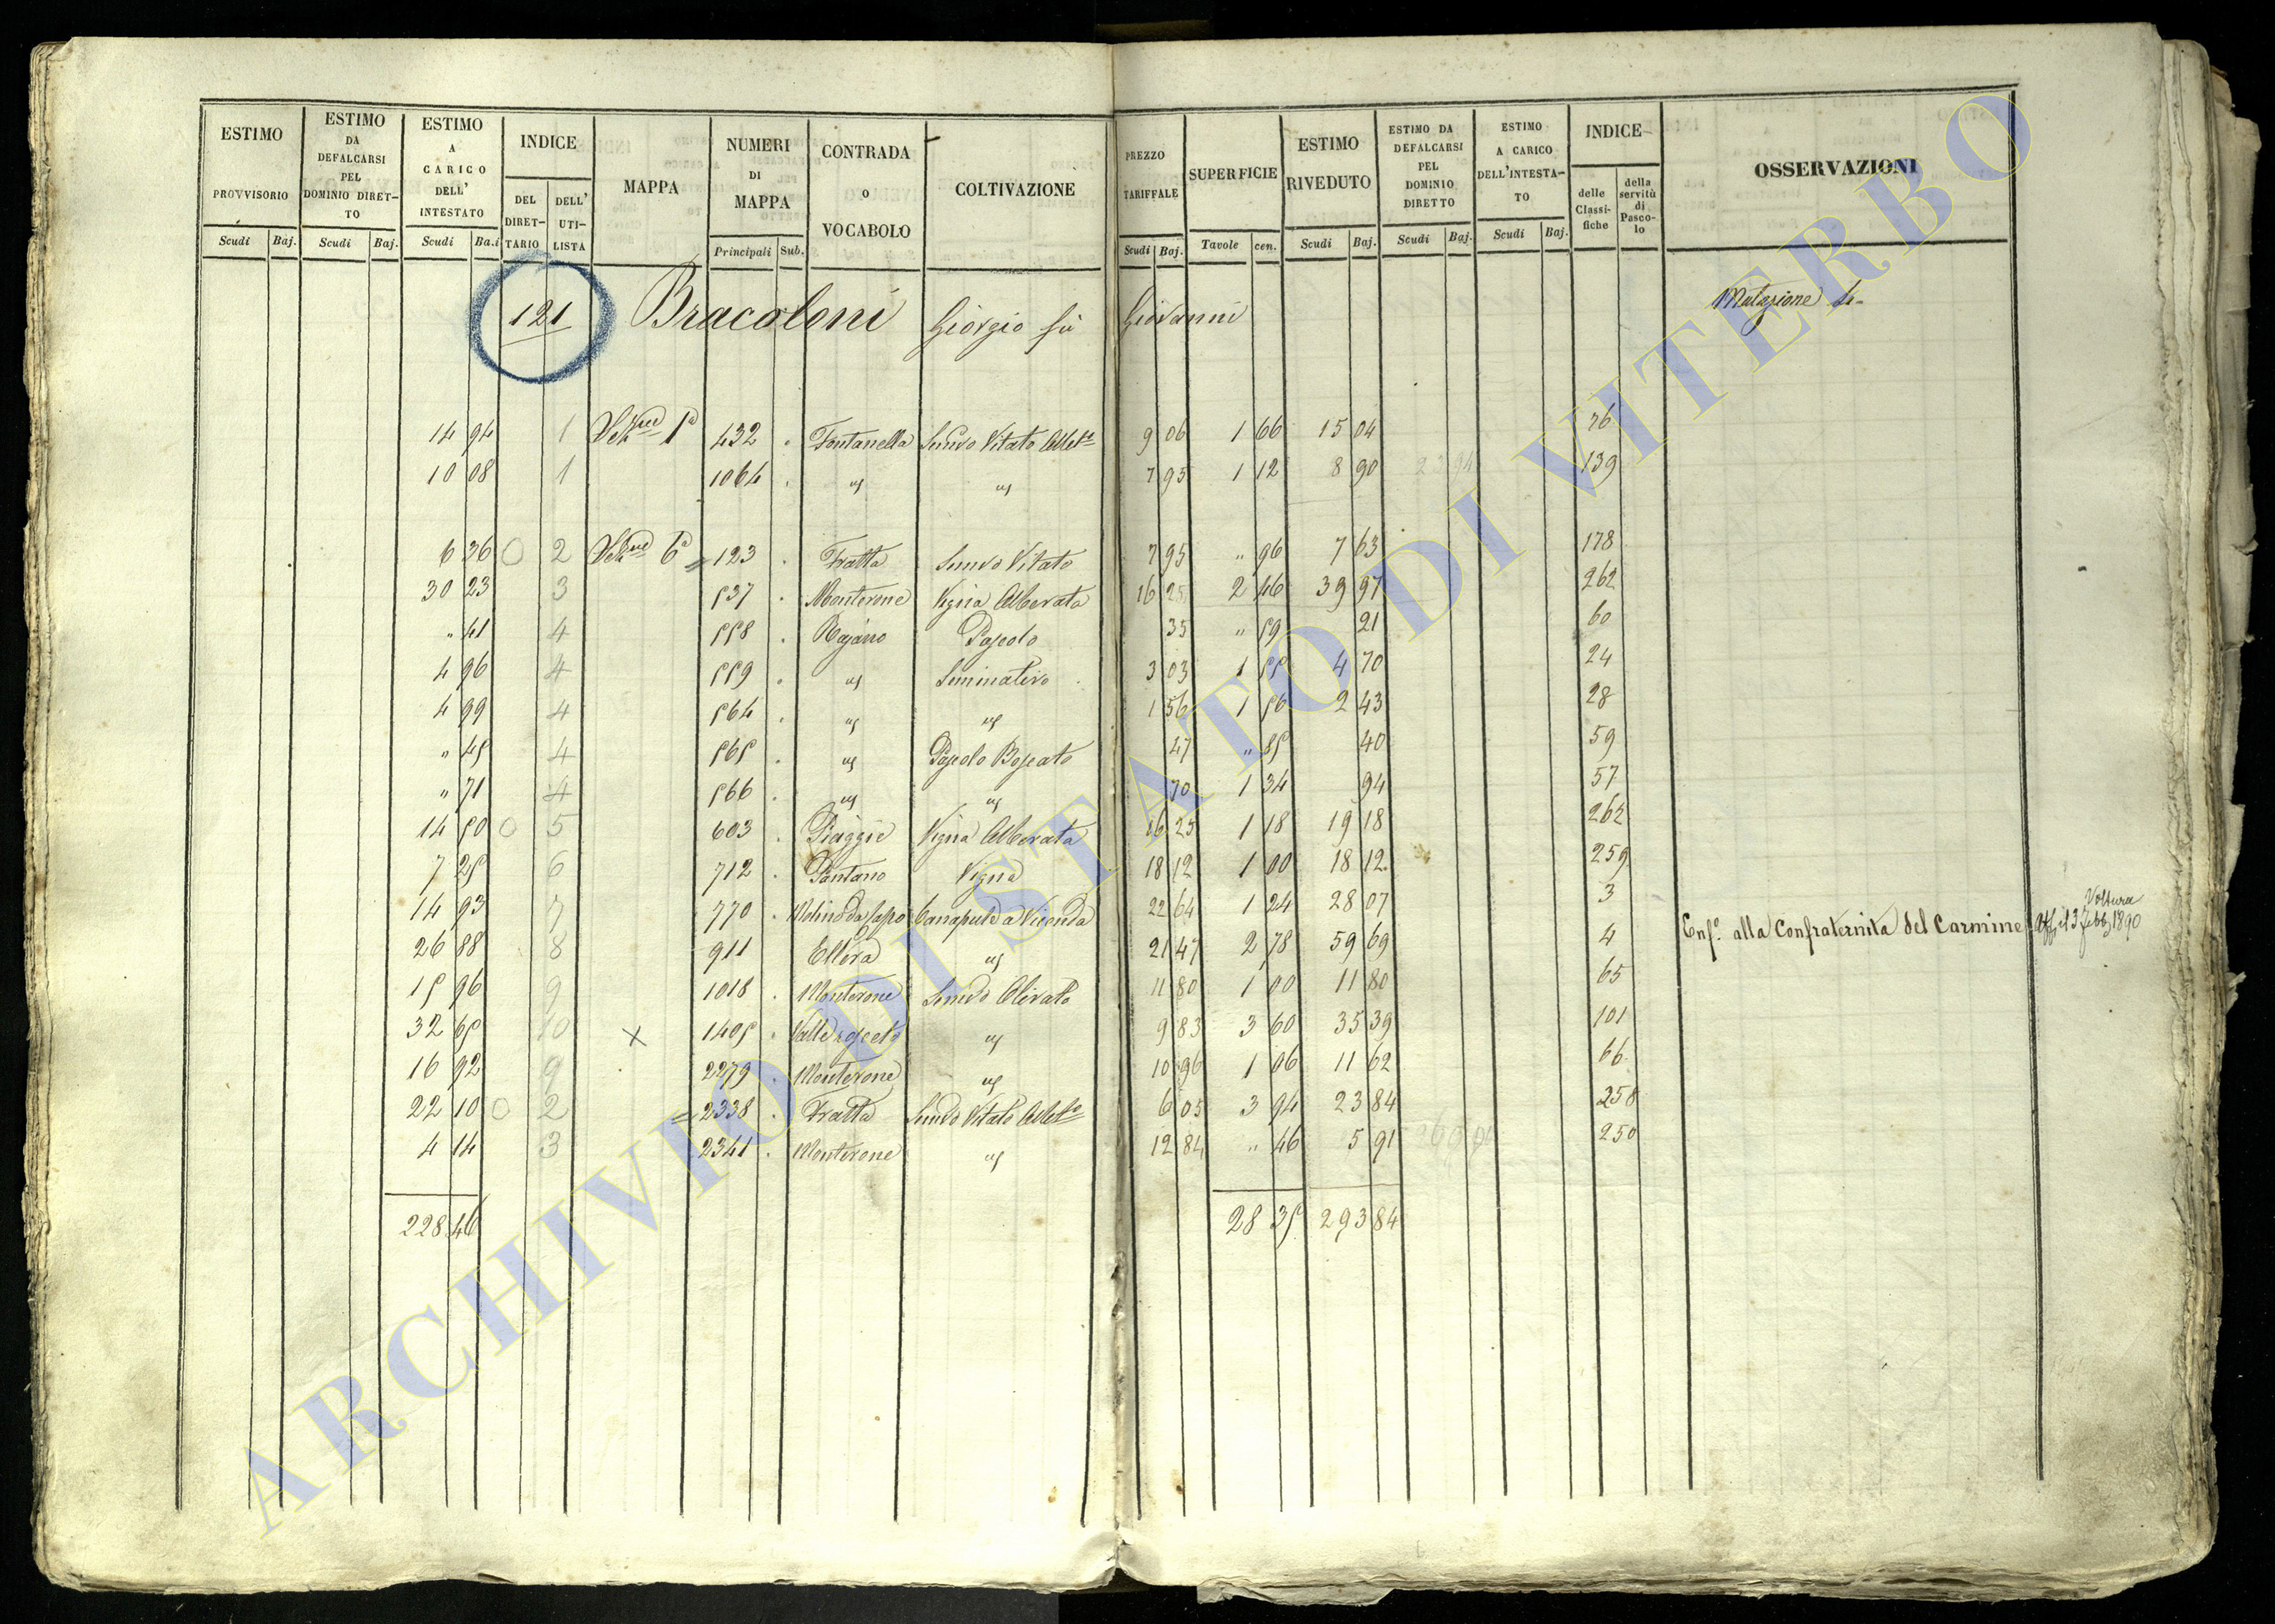 ESTIMO PROVVISORIO Scudi Baj.
ESTIMO DA DEFALCARSI PEL DOMINIO DIRET-TO Scudi Baj.
ESTIMO A CARICO DELL' INTESTATO Scudi Ba.i
INDICE DEL DIRET-TARIO DELL' UTI-LISTA
MAPPA
NUMERI DI MAPPA Principali Sub.
CONTRADA O VOCABOLO
COLTIVAZIONE
PREZZO TARIFFALE Scudi Baj.
SUPERFICIE Tavole cen.
ESTIMO RIVEDUTO Scudi Baj.
ESTIMO DA DEFALCARSI PEL DOMINIO DIRETTO Scudi Baj.
ESTIMO A CARICO DELL'INTESTA-TO Scudi Baj.
INDICE delle Classi-fiche della servitù di Pasco-lo
OSSERVAZIONI
121 Bracoloni Giorgio fu Giovanni
14 94 1 1a 432 Fontanella 9 06 1 66 15 04 76
10 08 1 1064 " " 7 95 1 12 8 90 139
6 36 2 6a 123 Fratta Semvo Vitato 7 95 " 96 7 63 178
30 23 3 537 Monterone Vigna Alberata 16 25 2 46 39 97 262
" 41 4 558 Rojano Pascolo 35 " 59 21 60
4 96 4 559 " Seminativo 3 03 1 55 4 70 24
4 99 4 564 " " 1 56 1 56 2 43 28
" 45 4 565 " Pascolo Boscato 47 " 85 40 59
" 71 4 566 " " 70 1 34 94 57
14 50 5 603 Piaggie Vigna Alberata 16 25 1 18 19 18 262
7 25 6 712 Pantano Vigna 18 12 1 00 18 12 259
14 93 7 770 Molino da Capo Canapule a Vicenda 22 64 1 24 28 07 3
26 88 8 911 Ellera " 21 47 2 78 59 69 4 Enfa. alla Confraternita del Carmine Voltura 3 Febb 1890
15 96 9 1018 Monterone Semvo Olivato 11 80 1 00 11 80 65
32 65 10 x 1405 " 9 83 3 60 35 39 101
16 92 9 2279 Monterone " 10 96 1 06 11 62 66
22 10 2 2338 Fratta 6 05 3 94 23 84 258
4 14 3 2341 Monterone " 12 84 " 46 5 91 250
228 46 28 35 293 84
ARCHIVIO DI STATO DI VITERBO